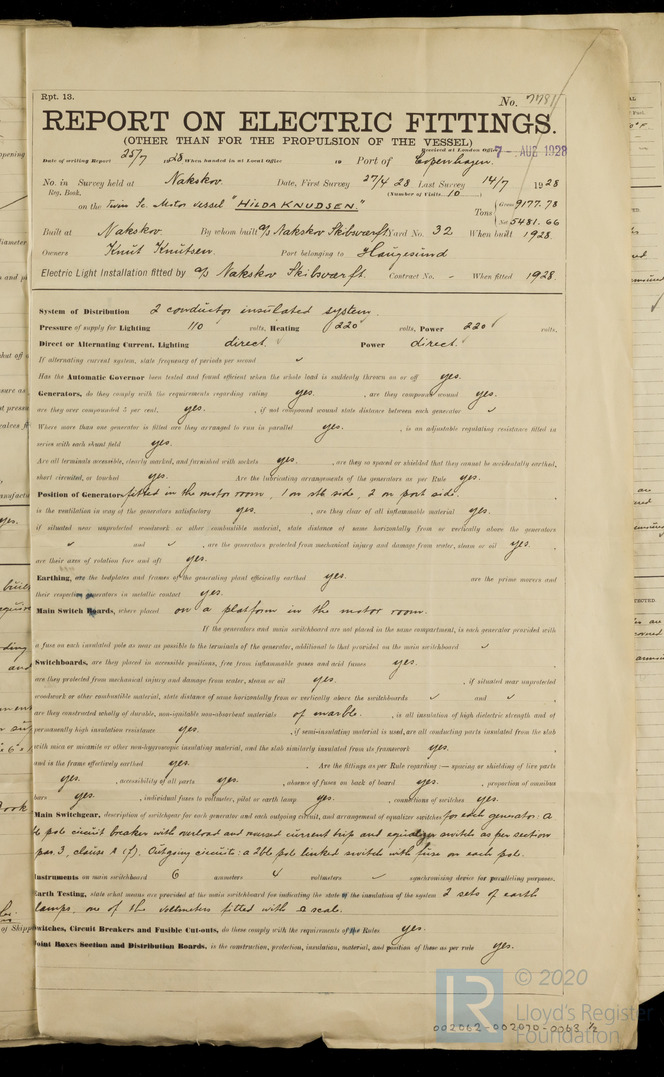 Rpt. 13.
No. 7481
REPORT ON ELECTRIC FITTINGS.
(OTHER THAN FOR THE PROPULSION OF THE VESSEL)
Received at London Office 7 - AUG 1928
Date of writing Report 25/7 1928 When handed in at Local Office 19 Port of Copenhagen.
No. in Survey held at Nakskov. Date, First Survey 27/4 28 Last Survey 14/7 1928
Reg. Book. (Number of Visits 10)
on the Twin Sc. Motor vessel "HILDA KNUDSEN." Tons { Gross 9177.78
Net 5481.66
Built at Nakskov. By whom built A/S Nakskov Skibsværft Yard No. 32 When built 1928.
Owners Knut Knutsen. Port belonging to Haugesund
Electric Light Installation fitted by A/S Nakskov Skibsværft. Contract No. - When fitted 1928.
System of Distribution 2 conductor insulated system.
Pressure of supply for Lighting 110 volts, Heating 220 volts, Power 220 volts.
Direct or Alternating Current, Lighting direct. Power direct.
If alternating current system, state frequency of periods per second
Has the Automatic Governor been tested and found efficient when the whole load is suddenly thrown on or off yes.
Generators, do they comply with the requirements regarding rating yes. , are they compound wound yes.
are they over compounded 5 per cent. yes. , if not compound wound state distance between each generator
Where more than one generator is fitted are they arranged to run in parallel yes. , is an adjustable regulating resistance fitted in
series with each shunt field yes.
Are all terminals accessible, clearly marked, and furnished with sockets yes. , are they so spaced or shielded that they cannot be accidentally earthed,
short circuited, or touched yes. Are the lubricating arrangements of the generators as per Rule yes.
Position of Generators fitted in the motor room, 1 on stb side, 2 on port side.
is the ventilation in way of the generators satisfactory yes. , are they clear of all inflammable material yes.
if situated near unprotected woodwork or other combustible material, state distance of same horizontally from or vertically above the generators
and , are the generators protected from mechanical injury and damage from water, steam or oil yes.
are their axes of rotation fore and aft yes.
Earthing, are the bedplates and frames of the generating plant efficiently earthed yes. are the prime movers and
their respective generators in metallic contact yes.
Main Switch Boards, where placed on a platform in the motor room.
If the generators and main switchboard are not placed in the same compartment, is each generator provided with
a fuse on each insulated pole as near as possible to the terminals of the generator, additional to that provided on the main switchboard
Switchboards, are they placed in accessible positions, free from inflammable gases and acid fumes yes.
are they protected from mechanical injury and damage from water, steam or oil yes. , if situated near unprotected
woodwork or other combustible material, state distance of same horizontally from or vertically above the switchboards and
are they constructed wholly of durable, non-ignitable non-absorbent materials of marble. , is all insulation of high dielectric strength and of
permanently high insulation resistance yes. , if semi-insulating material is used, are all conducting parts insulated from the slab
with mica or micanite or other non-hygroscopic insulating material, and the slab similarly insulated from its framework yes.
and is the frame effectively earthed yes. Are the fittings as per Rule regarding :— spacing or shielding of live parts
yes. , accessibility of all parts yes. , absence of fuses on back of board yes. , proportion of omnibus
bars yes. , individual fuses to voltmeter, pilot or earth lamp yes. , connections of switches yes.
Main Switchgear, description of switchgear for each generator and each outgoing circuit, and arrangement of equalizer switches for each generator: a
ble pole circuit breaker with overload and reversed current trip and equalizer switch as per section
par. 3, clause A (f). Outgoing circuits: a 2ble pole linked switch with fuse on each pole.
Instruments on main switchboard 6 ammeters 4 voltmeters synchronising device for paralleling purposes.
Earth Testing, state what means are provided at the main switchboard for indicating the state of the insulation of the system 2 sets of earth
lamps, one of the voltmeters fitted with Ω scale.
Switches, Circuit Breakers and Fusible Cut-outs, do these comply with the requirements of the Rules yes.
Joint Boxes Section and Distribution Boards, is the construction, protection, insulation, material, and position of these as per rule yes.
© 2020
Lloyd's Register
Foundation
002062-002070-0063 1/2